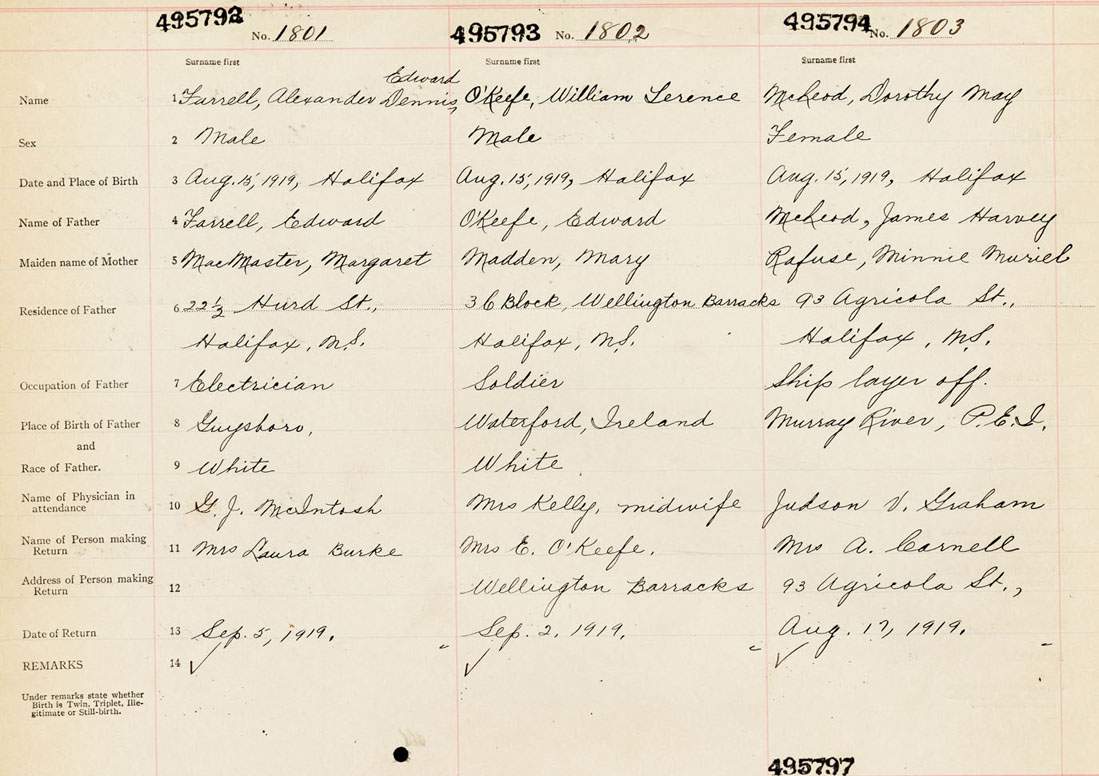 495792 No. 1801 495793 No. 1802 495794 No. 1803
Surname first Surname first Surname first
Edward
Name 1 Farrell, Alexander Dennis, O'Keefe, William Terence McLeod, Dorothy May
Sex 2 Male Male Female
Date and Place of Birth 3 Aug. 15, 1919, Halifax Aug. 15, 1919, Halifax Aug. 15, 1919, Halifax
Name of Father 4 Farrell, Edward O'Keefe, Edward McLeod, James Harvey
Maiden name of Mother 5 MacMaster, Margaret Madden, Mary Rafuse, Minnie Muriel
Residence of Father 6 22½ Hurd St., 3 C Block, Wellington Barracks 93 Agricola St.,
Halifax, N.S. Halifax, N.S. Halifax, N.S.
Occupation of Father 7 Electrician Soldier Ship layer off.
Place of Birth of Father 8 Guysboro, Waterford, Ireland Murray River, P.E.I.
and
Race of Father. 9 White White
Name of Physician in
attendance 10 G. J. McIntosh Mrs Kelly, midwife Judson V. Graham
Name of Person making
Return 11 Mrs Laura Burke Mrs E. O'Keefe. Mrs A. Carnell
Address of Person making
Return 12 Wellington Barracks 93 Agricola St.,
Date of Return 13 Sep. 5, 1919. Sep. 2, 1919. Aug. 17, 1919.
REMARKS 14
Under remarks state whether
Birth is Twin, Triplet, Ille-
gitimate or Still-birth.
495797